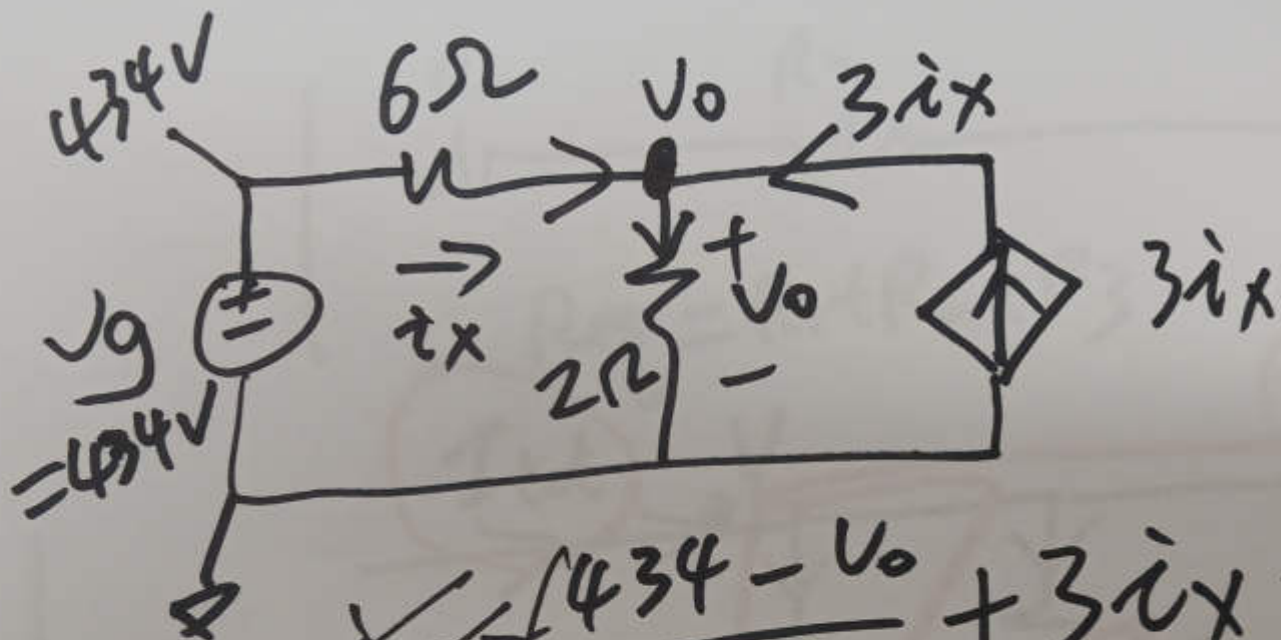 434V
6Ω
Vo
3ix
Vg
=434V
+
-
ix
2Ω
+
Vo
-
3ix
434 - Vo + 3ix